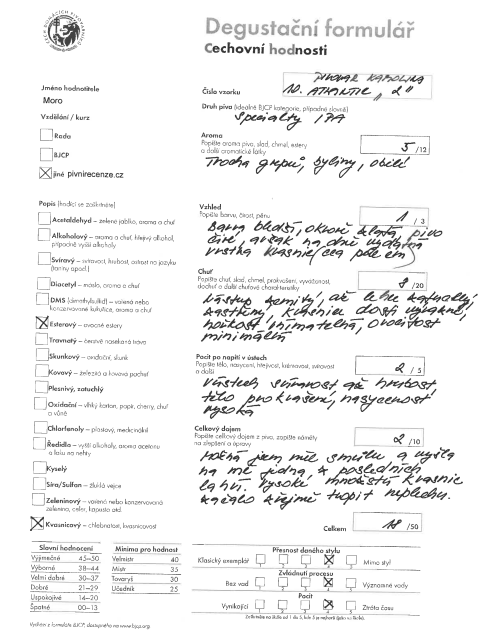 Degustační formulář
Cechovní hodnosti
Jméno hodnotitele
Moro
Vzdělání / kurz
Rada
BJCP
jiné pivnirecenze.cz
Popis (hodící se zaškrtněte)
Acetaldehyd – zelené jablko, aroma a chuť
Alkoholový – aroma a chuť, hřejivý alkohol,
případně vyšší alkoholy
Svíravý – svíravost, hrubost, ostrost na jazyku
(taniny apod.)
Diacetyl – máslo, aroma a chuť
DMS (dimethylsulfid) – vařená nebo
konzervovaná kukuřice, aroma a chuť
Esterový – ovocné estery
Travnatý – čerstvě nasekaná tráva
Skunkový – oxidační, skunk
Kovový – železitá a kovová pachuť
Plesnivý, zatuchlý
Oxidační – vlhký karton, papír, cherry, chuť
a vůně
Chlorfenoly – plastový, medicinální
Ředidlo – vyšší alkoholy, aroma acetonu
a laku na nehty
Kyselý
Síra/Sulfan – zkažlá vejce
Zeleninový – vařená nebo konzervovaná
zelenina, celer, kapusta atd.
Kvasnicový – chlebnatost, kvasnicovost
Slovní hodnocení
Výjimečné 45–50
Výborné 38–44
Velmi dobré 30–37
Dobré 21–29
Uspokojivé 14–20
Špatné 00–13
Minimo pro hodnost
Velmistr 40
Mistr 35
Tovaryš 30
Učedník 25
Vychází z formuláře BJCP, dostupného na www.bjcp.org
PIVOVAR KAROLINA
Číslo vzorku 10. ATLANTIC „2"
Druh piva (ideálně BJCP kategorie, případně slovně)
Specialty IPA
Aroma
Popište aroma piva, slad, chmel, estery
a další aromatické látky
5 /12
Trocha grepů, byliny, obilí
Vzhled
Popište barvu, čirost, pěnu
1 / 3
Barva bledší, okrově zlatá, pivo
čiré, avšak na dně výdatná
vrstva kvasnic
Chuť
Popište chuť, slad, chmel, prokvašení, vyváženost,
dochuť a další chuťové charakteristiky
8 /20
Nástup jemný, až lehce
kvasnice dosti výrazné,
hořkost vnímatelná, ovocitost
minimální
Pocit po napití v ústech
Popište tělo, nasycení, hřejivost, krémovost, svíravost
a další
2 / 5
V ústech svíravost až hrubost,
tělo prokvašené, nasycenost
vysoká
Celkový dojem
Popište celkový dojem z piva, zapište náměty
na zlepšení a úpravy
2 /10
Možná jsem měl smůlu a vyšla
na mě jedna z posledních
lahví. Vysoké množství kvasnic
začalo zřejmě tropit neplechu.
Celkem 18 /50
Přesnost daného stylu
Klasický exemplář Mimo styl
Zvládnutí procesu
Bez vad Významné vady
Pocit
Vynikající Ztráta času